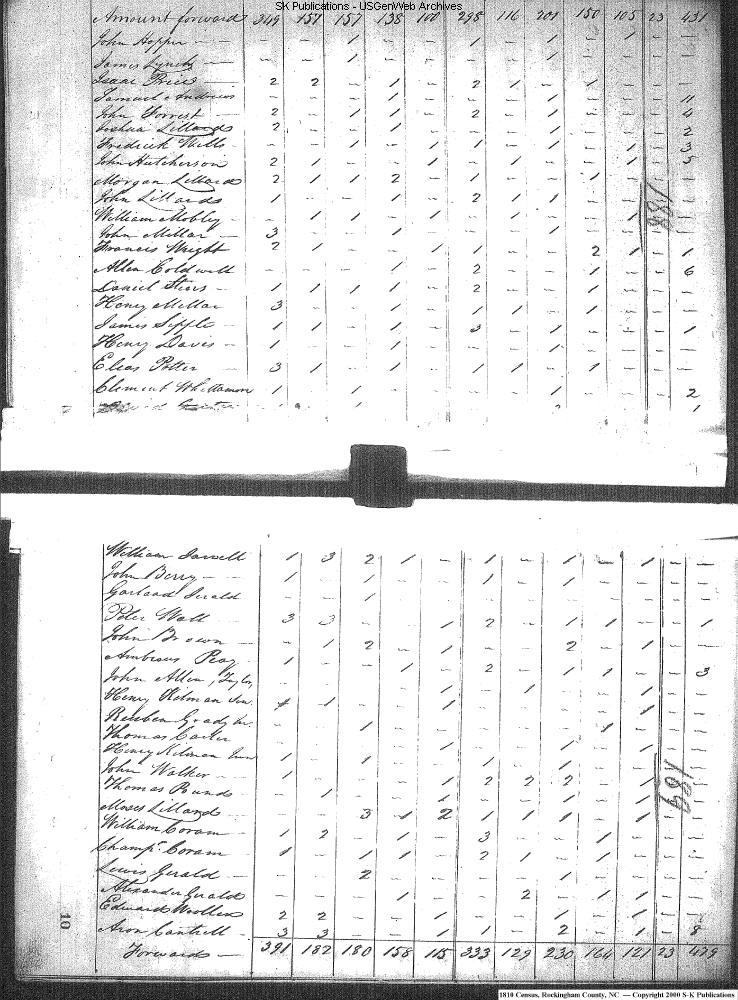 SK Publications - USGenWeb Archives
Amount forward 349 157 157 138 100 298 116 201 150 105 23 431
John Hopper - - 1 - - 1 - 1 - - - -
James Lynch - - 1
Isaac 2 2 - 1 - 2 1 - 1 - - -
Samuel Andrews - - - 1 - - - 1 - - - 11
John Forrest 2 - 1 1 - 2 - 1 - - - 4
Joshua Lillard 2 - - 1 - - - 1 - - - 2
Fredrick Wills - - 1 - 1 - 1 - - 1 - 3
John Hutcherson 2 1 - - 1 - 1 - - 1 - 5
Morgan Lillard 2 1 1 2 - 1 1 - 1 - - -
John Lillard 1 - - 1 - 2 1 1 - - - -
William Mobley - 1 1 - 1 - 1 - - 1 - -
John Millar 3 - - 1 - - - 1 - - - -
Francis Wright 2 1 - - 1 1 - - 2 1 - 1
Allen Coldwell - - - 1 - 2 - - 1 - - 6
Daniel 1 1 1 1 - 2 - - 1 - - -
Henry Millar 3 - - 1 - 1 1 - 1 - - -
James 1 1 - 1 - 3 - 1 - - - 1
Henry Davis 1 - - 1 - - - 1 - - - -
Elias Potter 3 1 - 1 - 1 1 - 1 - - -
Clement Whittamore 1 - 1 - - - - 1 - - - 2
188
William 1 3 2 1 - 1 - 1 - 1 - -
John Berry 1 - 1 - - 1 - 1 - - - -
Garland - - 1 - - - - - - - - -
Peter Wall 3 3 - - 1 2 - 1 1 - - 1
John Brown - 1 2 - 1 - - 2 - 1 - -
Ambrous Peay 1 - - 1 - 2 - 1 1 - - 3
John Allen, Taylor - - - - 1 - 1 - - 1 - -
Henry Kilman Sen. 1 1 - - 1 - - - - 1 - -
Reuben Grady - - 1 - - - - - 1 - - -
Thomas Carter
Henry Kilman Jun 1 - 1 - - 1 - 1 - - - -
John Walker 1 - - - 1 2 2 2 - 1 - -
Thomas Pounds - 1 - - 1 - - 1 - 1 - -
Moses Lillard - - 3 1 2 1 1 1 - 1 - -
William Coram 1 2 - 1 - 3 - - 1 - - -
Champn. Coram 1 - 1 1 - 2 1 - 1 - - -
Lewis Gerald - - 2 - - - - 1 - - - -
Alexander Gerald - - - 1 - - 2 - 1 1 - -
Edward Woollen 2 2 - - 1 - - 1 - 1 - -
Aron Cantrell 3 3 - - 1 1 - 2 - 1 - 8
Forwards 391 182 180 158 115 333 129 230 164 121 23 479
189
10
1810 Census, Rockingham County, NC — Copyright 2000 S-K Publications